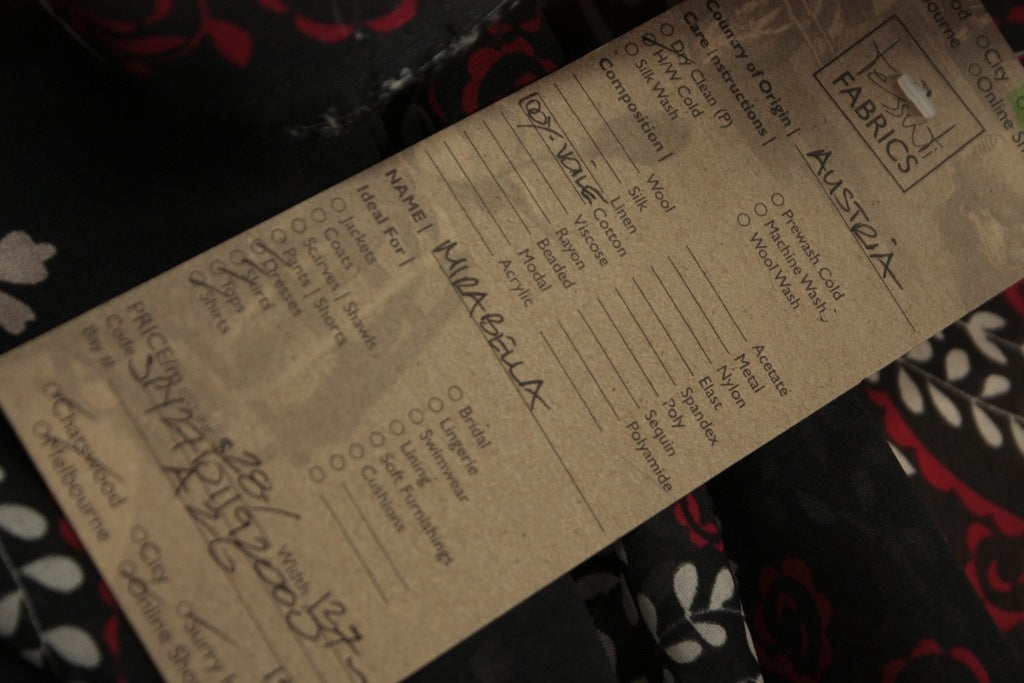 Tessuti
FABRICS
Country of Origin | AUSTRIA
Care Instructions |
Dry Clean (P)
H/W Cold
Silk Wash
Prewash Cold
Machine Wash
Wool Wash
Composition |
Wool
Silk
Linen
100% VOILE Cotton
Viscose
Rayon
Beaded
Modal
Acrylic
Acetate
Metal
Nylon
Elast
Spandex
Poly
Sequin
Polyamide
NAME | MIRABELLA
Ideal For |
Jackets
Coats
Scarves | Shawls
Pants | Shorts
Dresses
Skirts
Tops
Shirts
Bridal
Lingerie
Swimwear
Lining
Soft Furnishings
Cushions
PRICE $28/- Width 137
Code
Bay #: A 26
Chatswood
Melbourne
City
Online
Surry
bourne
City
Online